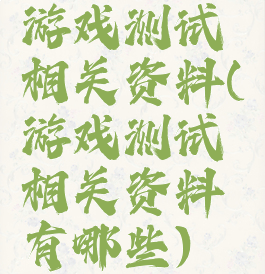 游戏测试
相关资料(
游戏测试
相关资料
有哪些)